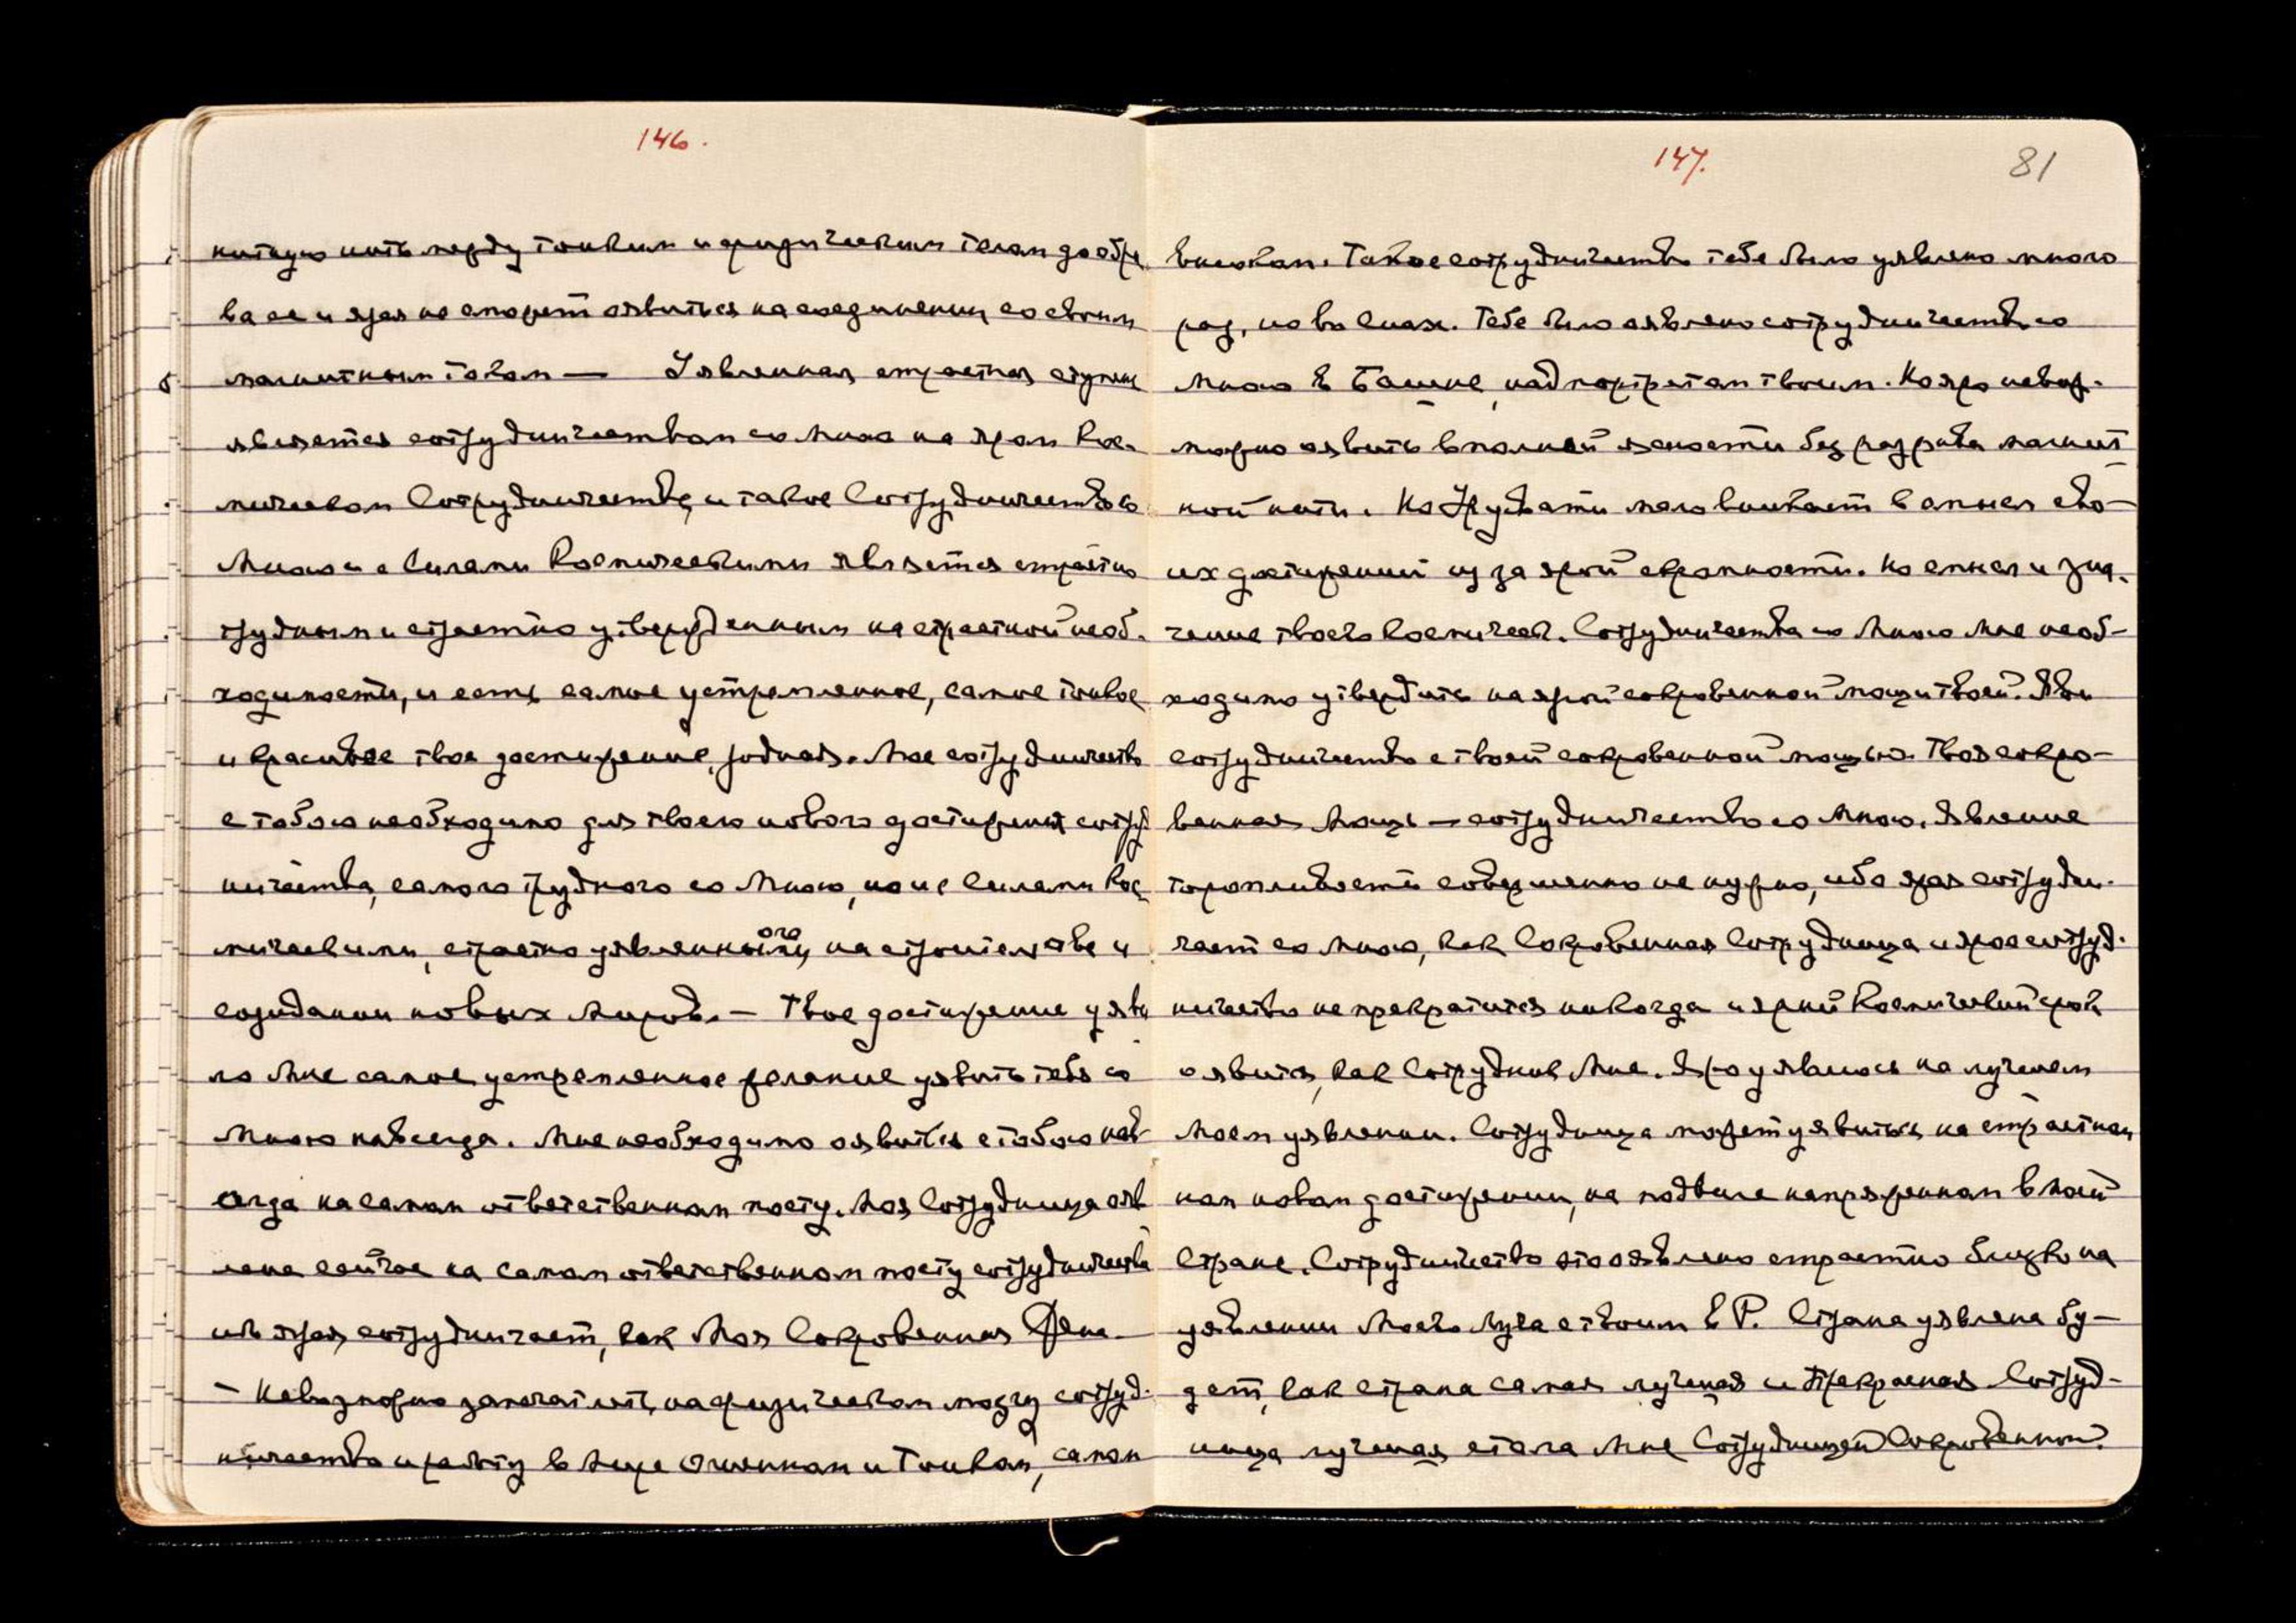 146.
нитную нить между тонким и физическим телом добре
ва ее и ярая не может явиться на соединении со своим
магнитным током — Уявленная страстная ступень
является сотрудничеством со Мною на яром Кос-
мическом Сотрудничестве, и такое Сотрудничество со
Мною и с Силами Космическими является страстно
трудным и страстно утвержденным на страстной необ-
ходимости, и есть самое устремленное, самое тонкое
и красивое твое достижение, родная. Мое сотрудничество
с тобою необходимо для твоего нового достижения сотруд
ничества, самого трудного со Мною, но и с Силами Кос
мическими, страстно уявленного на строительстве и
созидании новых Миров. — Твое достижение уяви
ло Мне самое устремленное желание уявить тебя со
Мною навсегда. Мне необходимо оявиться с тобою нав
сегда на самом ответственном посту. Моя Сотрудница ояв
лена сейчас на самом ответственном посту сотрудничества
ибо ярая сотрудничает, как Моя Сокровенная Жена —
— Невозможно запечатлеть на физическом мозгу сотруд-
ничество и работу в Мире Огненном и Тонком, самом
147.
81
высоком. Такое сотрудничество тебе было уявлено много
раз, но во снах. Тебе было оявлено сотрудничество со
Мною в Башне, над портретом твоим. Но яро невоз-
можно оявить в полной ясности без разрыва магнит
ной нити. Но Урусвати мало вникает в смысл сво-
их достижений из за ярой скромности. Но смысл и зна-
чение твоего Космическ. Сотрудничества со Мною Мне необ-
ходимо утвердить на ярой сокровенной мощи твоей. Яви
сотрудничество с твоей сокровенной мощью. Твоя сокро-
венная Мощь — сотрудничество со Мною. Явление
торопливости совершенно не нужно, ибо ярая сотрудни-
чает со Мною, как Сокровенная Сотрудница и ярое сотруд-
ничество не прекратится никогда и ярый Космический срок
оявится, как Сотрудник Мне. Яро уявлюсь на лучшем
Моем уявлении. Сотрудница может уявиться на страстном
ном новом достижении, на подвиге напряженном в Моей
Стране. Сотрудничество это оявлено страстно близко на
уявлении Моего Луча с твоим в Р. Страна уявлена бу-
дет, как страна самая лучшая и Прекрасная. Сотруд-
ница лучшая стала Мне Сотрудницей Сокровенной.